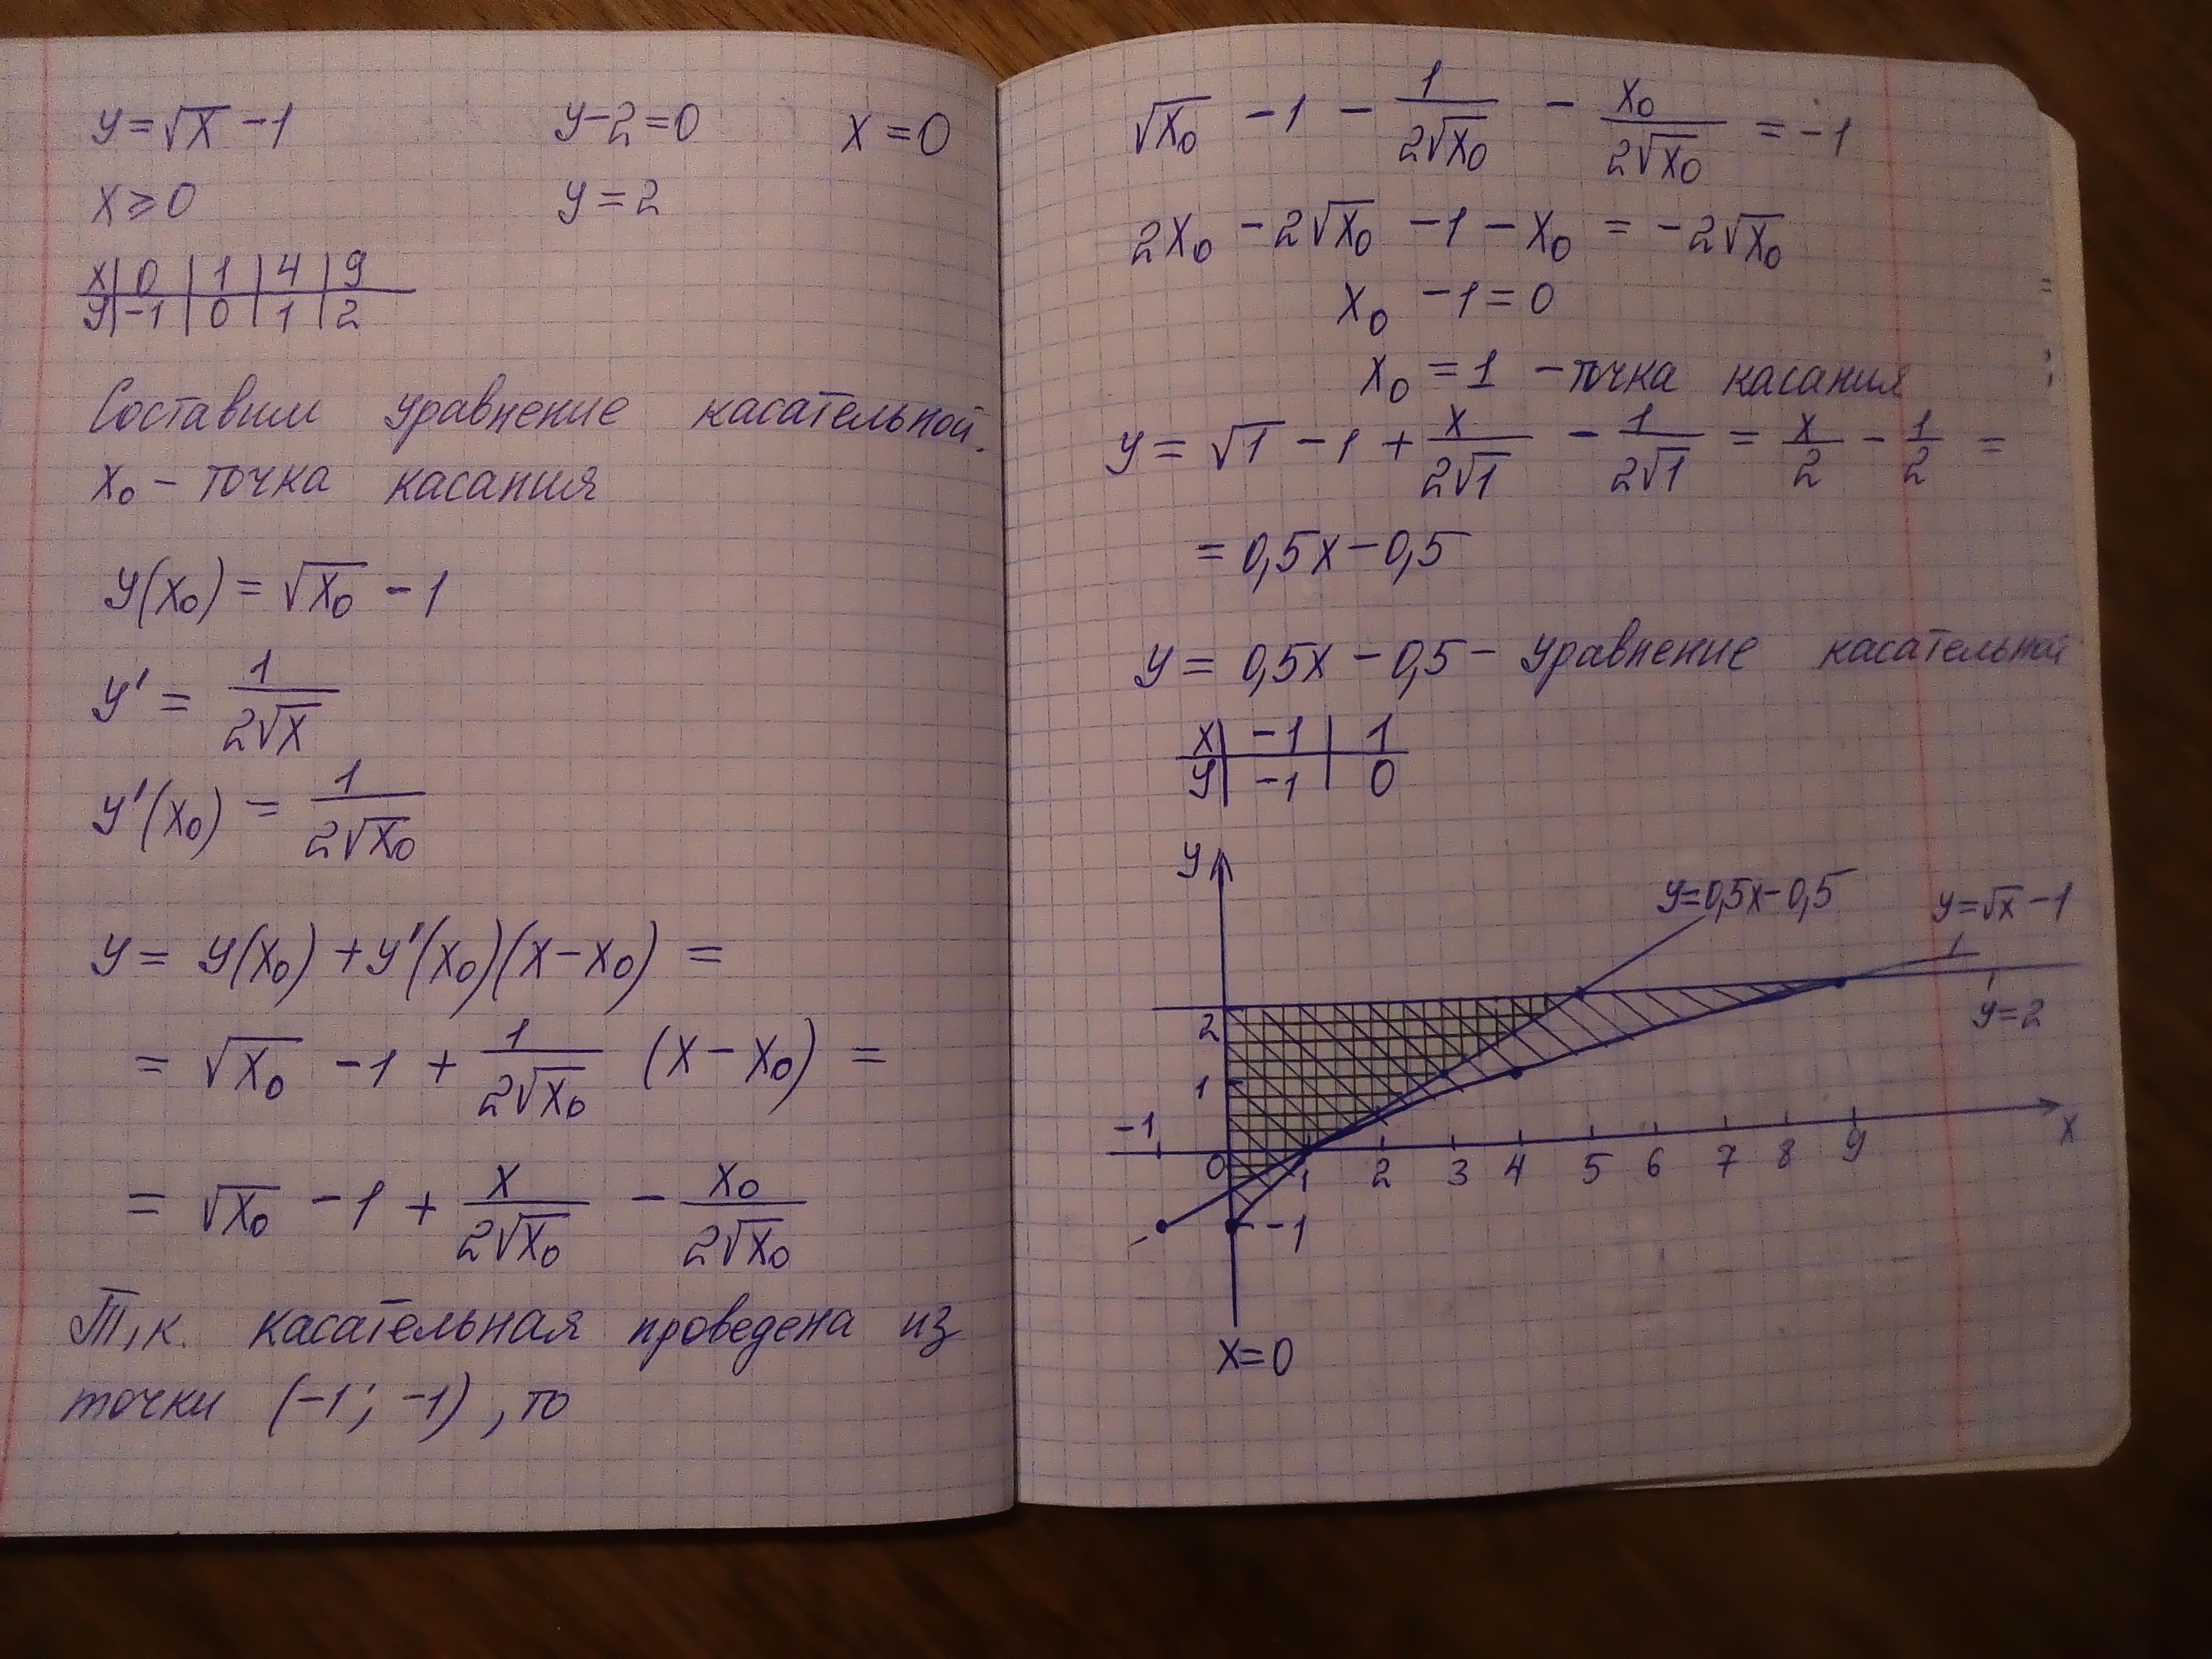 y=√x -1 y-2=0 x=0
x⩾0 y=2
x | 0 | 1 | 4 | 9
y | -1 | 0 | 1 | 2
Составим уравнение касательной.
x₀ - точка касания
y(x₀) = √x₀ - 1
y' = 1/(2√x)
y'(x₀) = 1/(2√x₀)
y = y(x₀) + y'(x₀)(x-x₀) =
= √x₀ -1 + 1/(2√x₀) (x-x₀) =
= √x₀ -1 + x/(2√x₀) - x₀/(2√x₀)
Т,к. касательная проведена из
точки (-1; -1), то
√x₀ -1 - 1/(2√x₀) - x₀/(2√x₀) = -1
2x₀ -2√x₀ -1-x₀ = -2√x₀
x₀ -1=0
x₀ =1 -точка касания
y= √1 -1 + x/(2√1) - 1/(2√1) = x/2 - 1/2 =
= 0,5x-0,5
y= 0,5x-0,5- уравнение касательной
x | -1 | 1
y | -1 | 0
y
y=0,5x-0,5
y=√x -1
2
y=2
1
-1
0 1 2 3 4 5 6 7 8 9 x
-1
x=0